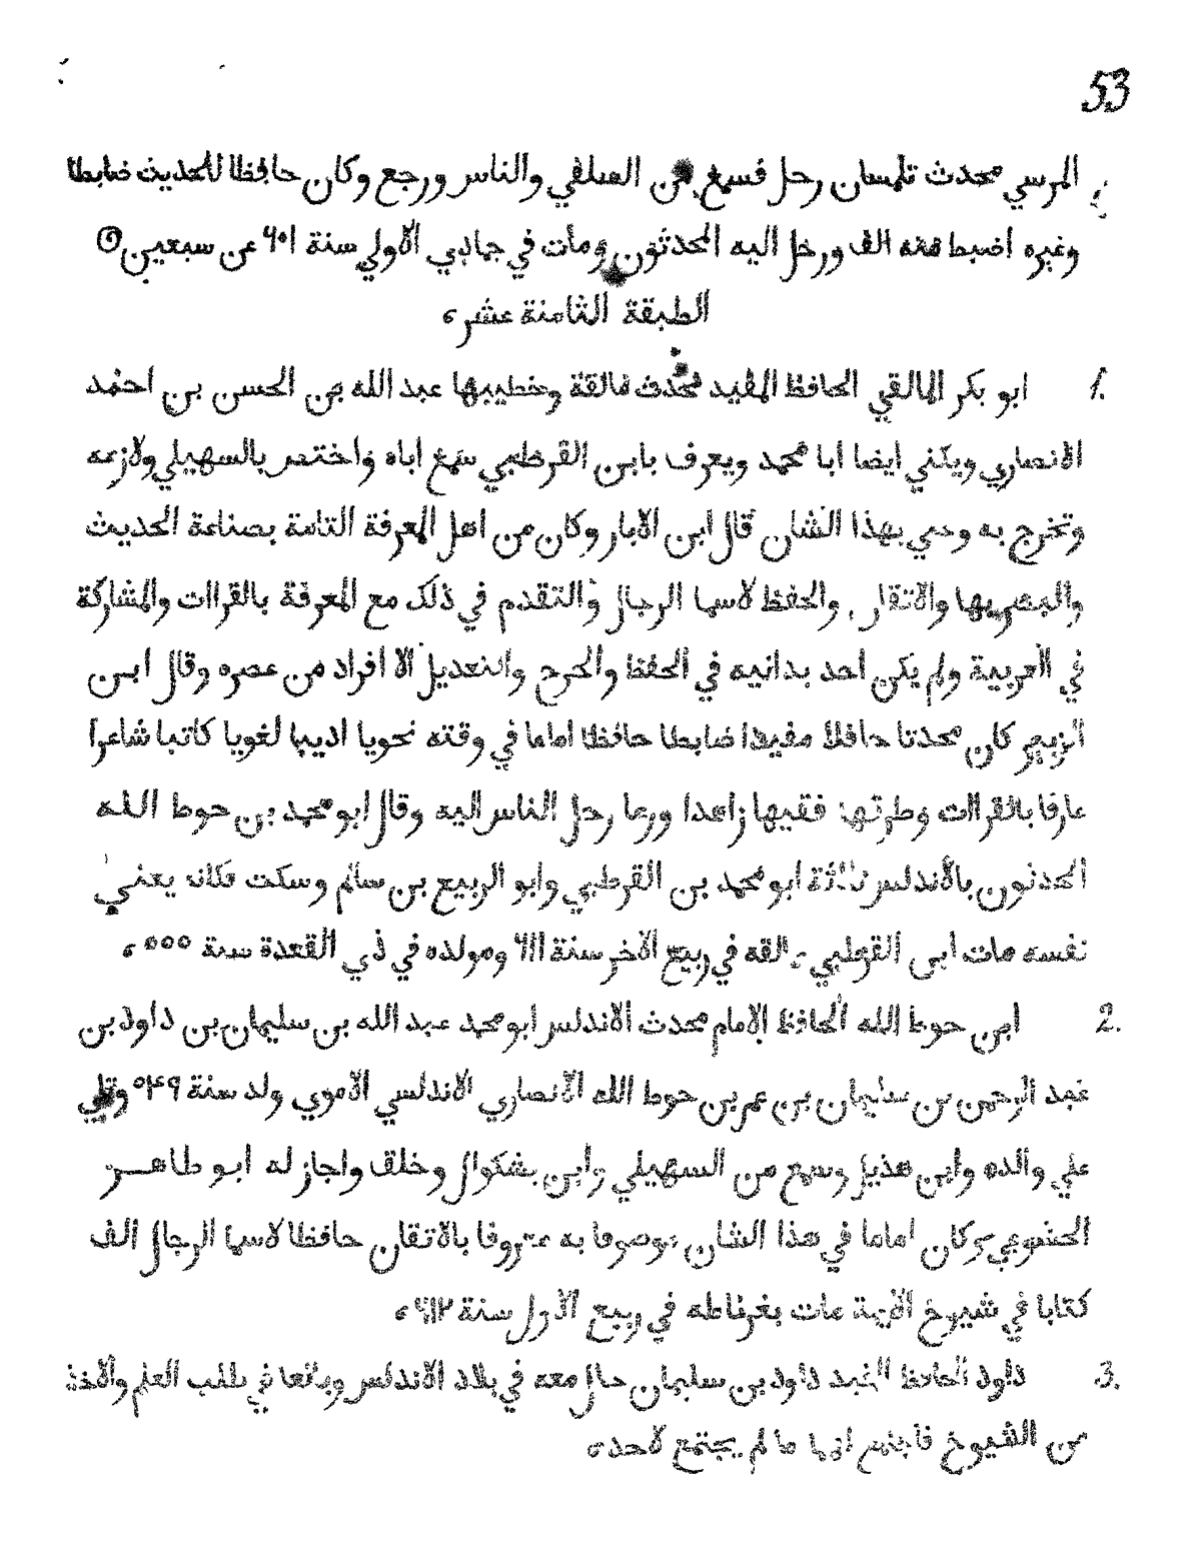 53
المرسي محدث تلمسان رحل فسمع من السلفي والناس ورجع وكان حافظا للحديث ضابطا
وغيره اضبط منه الف ورحل اليه المحدثون ومات في جمادي الاولي سنة ٦٠١ عن سبعين
الطبقة الثامنة عشره
1. ابو بكر المالقي الحافظ المفيد محدث مالقة وخطيبها عبد الله بن الحسن بن احمد
الانصاري ويكني ايضا ابا محمد ويعرف بابن القرطبي سمع اباه واختص بالسهيلي ولازمه
وتخرج به وعني بهذا الشان قال ابن الابار وكان من اهل المعرفة التامة بصناعة الحديث
والبصر بها والاتقان والحفظ لاسما الرجال والتقدم في ذلك مع المعرفة بالقراات والمشاركة
في العربية ولم يكن احد يدانيه في الحفظ والجرح والتعديل الا افراد من عصره وقال ابن
الزبير كان محدثا حافلا مفيدا ضابطا حافظا اماما في وقته نحويا اديبا لغويا كاتبا شاعرا
عارفا بالقراات وطرقها فقيها زاهدا ورعا رحل الناس اليه وقال ابو محمد بن حوط الله
المحدثون بالاندلس ثلاثة ابو محمد بن القرطبي وابو الربيع بن سالم وسكت فكانه يعني
نفسه مات ابن القرطبي بمالقه في ربيع الاخر سنة ٦١١ ومولده في ذي القعدة سنة ٥٥٥
2. ابن حوط الله الحافظ الامام محدث الاندلس ابو محمد عبد الله بن سليمان بن داود بن
عبد الرحمن بن سليمان بن عمر بن حوط الله الانصاري الاندلسي الاموي ولد سنة ٥٤٩ وتلي
علي والده وابن هذيل وسمع من السهيلي وابن بشكوال وخلق واجاز له ابو طاهر
الخشوعي وكان اماما في هذا الشان موصوفا به معروفا بالاتقان حافظا لاسما الرجال الف
كتابا في شيوخ الايمة مات بغرناطه في ربيع الاول سنة ٦١٢
3. داود الحافظ المفيد داود بن سليمان جال معه في بلاد الاندلس وبالغا في طلب العلم والاخذ
من الشيوخ فاجتمع لهما ما لم يجتمع لاحد